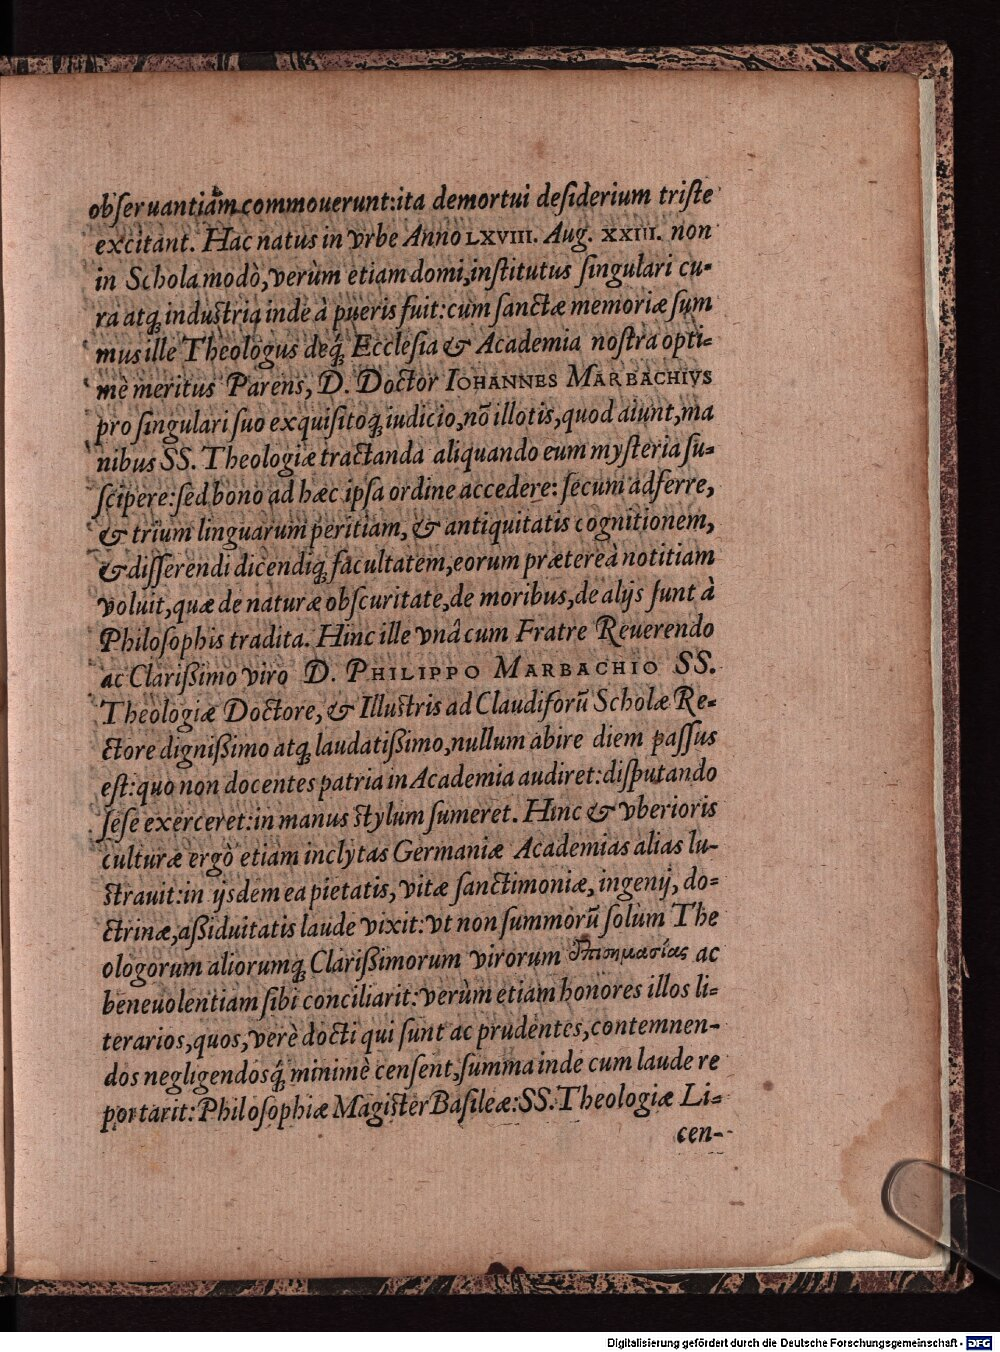 obſeruantiam commouerunt: ita demortui deſiderium triſte
excitant. Hac natus in vrbe Anno LXVIII. Aug. XXIII. non
in Schola modò, verùm etiam domi, inſtitutus ſingulari cu-
ra atq; induſtria inde à pueris fuit: cum ſanctæ memoriæ ſum
mus ille Theologus deq́; Eccleſia & Academia noſtra opti-
mè meritus Parens, D. Doctor IOHANNES MARBACHIVS
pro ſingulari ſuo exquiſitoq; iudicio, nō illotis, quod aiunt, ma
nibus SS. Theologiæ tractanda aliquando eum myſteria ſu-
ſcipere: ſed bono ad hæc ipſa ordine accedere: ſecum adferre,
& trium linguarum peritiam, & antiquitatis cognitionem,
& diſſerendi dicendiq; facultatem, eorum prætereà notitiam
voluit, quæ de naturæ obſcuritate, de moribus, de alijs ſunt à
Philoſophis tradita. Hinc ille vnâ cum Fratre Reuerendo
ac Clarißimo viro D. PHILIPPO MARBACHIO SS.
Theologiæ Doctore, & Illuſtris ad Claudiforū Scholæ Re-
ctore digniſsimo atq; laudatißimo, nullum abire diem paſſus
eſt: quo non docentes patria in Academia audiret: diſputando
ſeſe exerceret: in manus ſtylum ſumeret. Hinc & vberioris
culturæ ergò etiam inclytas Germaniæ Academias alias lu-
ſtrauit: in ijsdem ea pietatis, vitæ ſanctimoniæ, ingenij, do-
ctrinæ, aßiduitatis laude vixit: vt non ſummorū ſolùm The
ologorum aliorumq; Clarißimorum virorum ἐπισημασίας ac
beneuolentiam ſibi conciliarit: verùm etiam honores illos li-
terarios, quos, verè docti qui ſunt ac prudentes, contemnen-
dos negligendosq́; minimè cenſent, ſumma inde cum laude re
portarit: Philoſophiæ Magiſter Baſileæ: SS. Theologiæ Li-
cen-
Digitalisierung gefördert durch die Deutsche Forschungsgemeinschaft - DFG